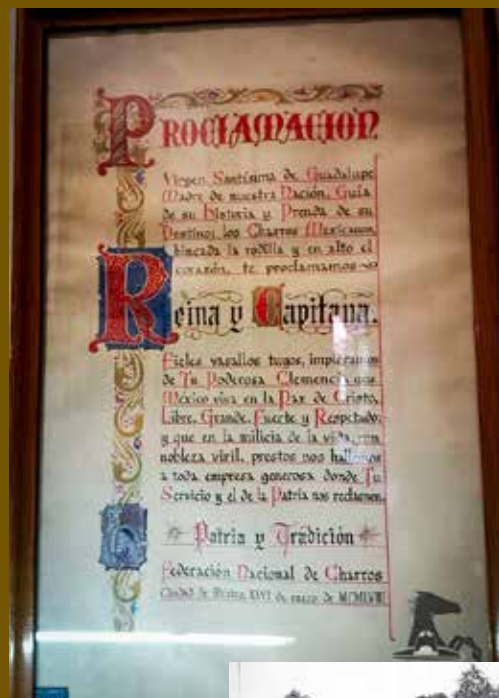 PROCLAMACION
Virgen Santísima de Guadalupe
Madre de nuestra Nación, Guía
de su Historia y Prenda de su
Destino; los Charros Mexicanos,
hincada la rodilla y en alto el
corazón, te proclamamos
Reina y Capitana.
Fieles vasallos tuyos, imploramos
de Tu Poderosa Clemencia que
México viva en la Paz de Cristo,
Libre, Grande, Fuerte y Respetado;
y que en la milicia de la vida, con
nobleza viril, prestos nos hallemos
a toda empresa generosa donde Tu
Servicio y el de la Patria nos reclamen.
Patria y Tradición
Federación Nacional de Charros
Ciudad de México, de de